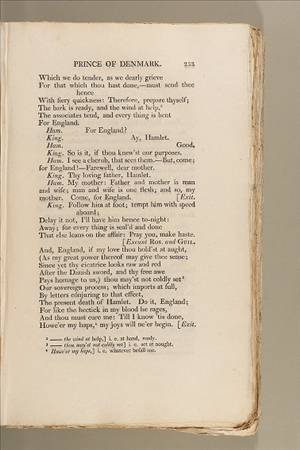 PRINCE OF DENMARK. 233
Which we do tender, as we dearly grieve
For that which thou hast done,—must send thee
hence
With fiery quickness: Therefore, prepare thyself;
The bark is ready, and the wind at help,²
The associates tend, and every thing is bent
For England.
Ham. For England?
King. Ay, Hamlet.
Ham. Good.
King. So is it, if thou knew'st our purposes.
Ham. I see a cherub, that sees them.—But, come;
for England!—Farewell, dear mother.
King. Thy loving father, Hamlet.
Ham. My mother: Father and mother is man
and wife; man and wife is one flesh; and so, my
mother. Come, for England. [Exit.
King. Follow him at foot; tempt him with speed
aboard;
Delay it not, I'll have him hence to-night:
Away; for every thing is seal'd and done
That else leans on the affair: Pray you, make haste.
[Exeunt Ros. and Guil.
And, England, if my love thou hold'st at aught,
(As my great power thereof may give thee sense;
Since yet thy cicatrice looks raw and red
After the Danish sword, and thy free awe
Pays homage to us,) thou may'st not coldly set³
Our sovereign process; which imports at full,
By letters cónjuring to that effect,
The present death of Hamlet. Do it, England;
For like the hectick in my blood he rages,
And thou must cure me: Till I know 'tis done,
Howe'er my haps,⁴ my joys will ne'er begin. [Exit.
² —— the wind at help,] i. e. at hand, ready.
³ —— thou may'st not coldly set] i. e. set at nought.
⁴ Howe'er my haps,] i. e. whatever befall me.